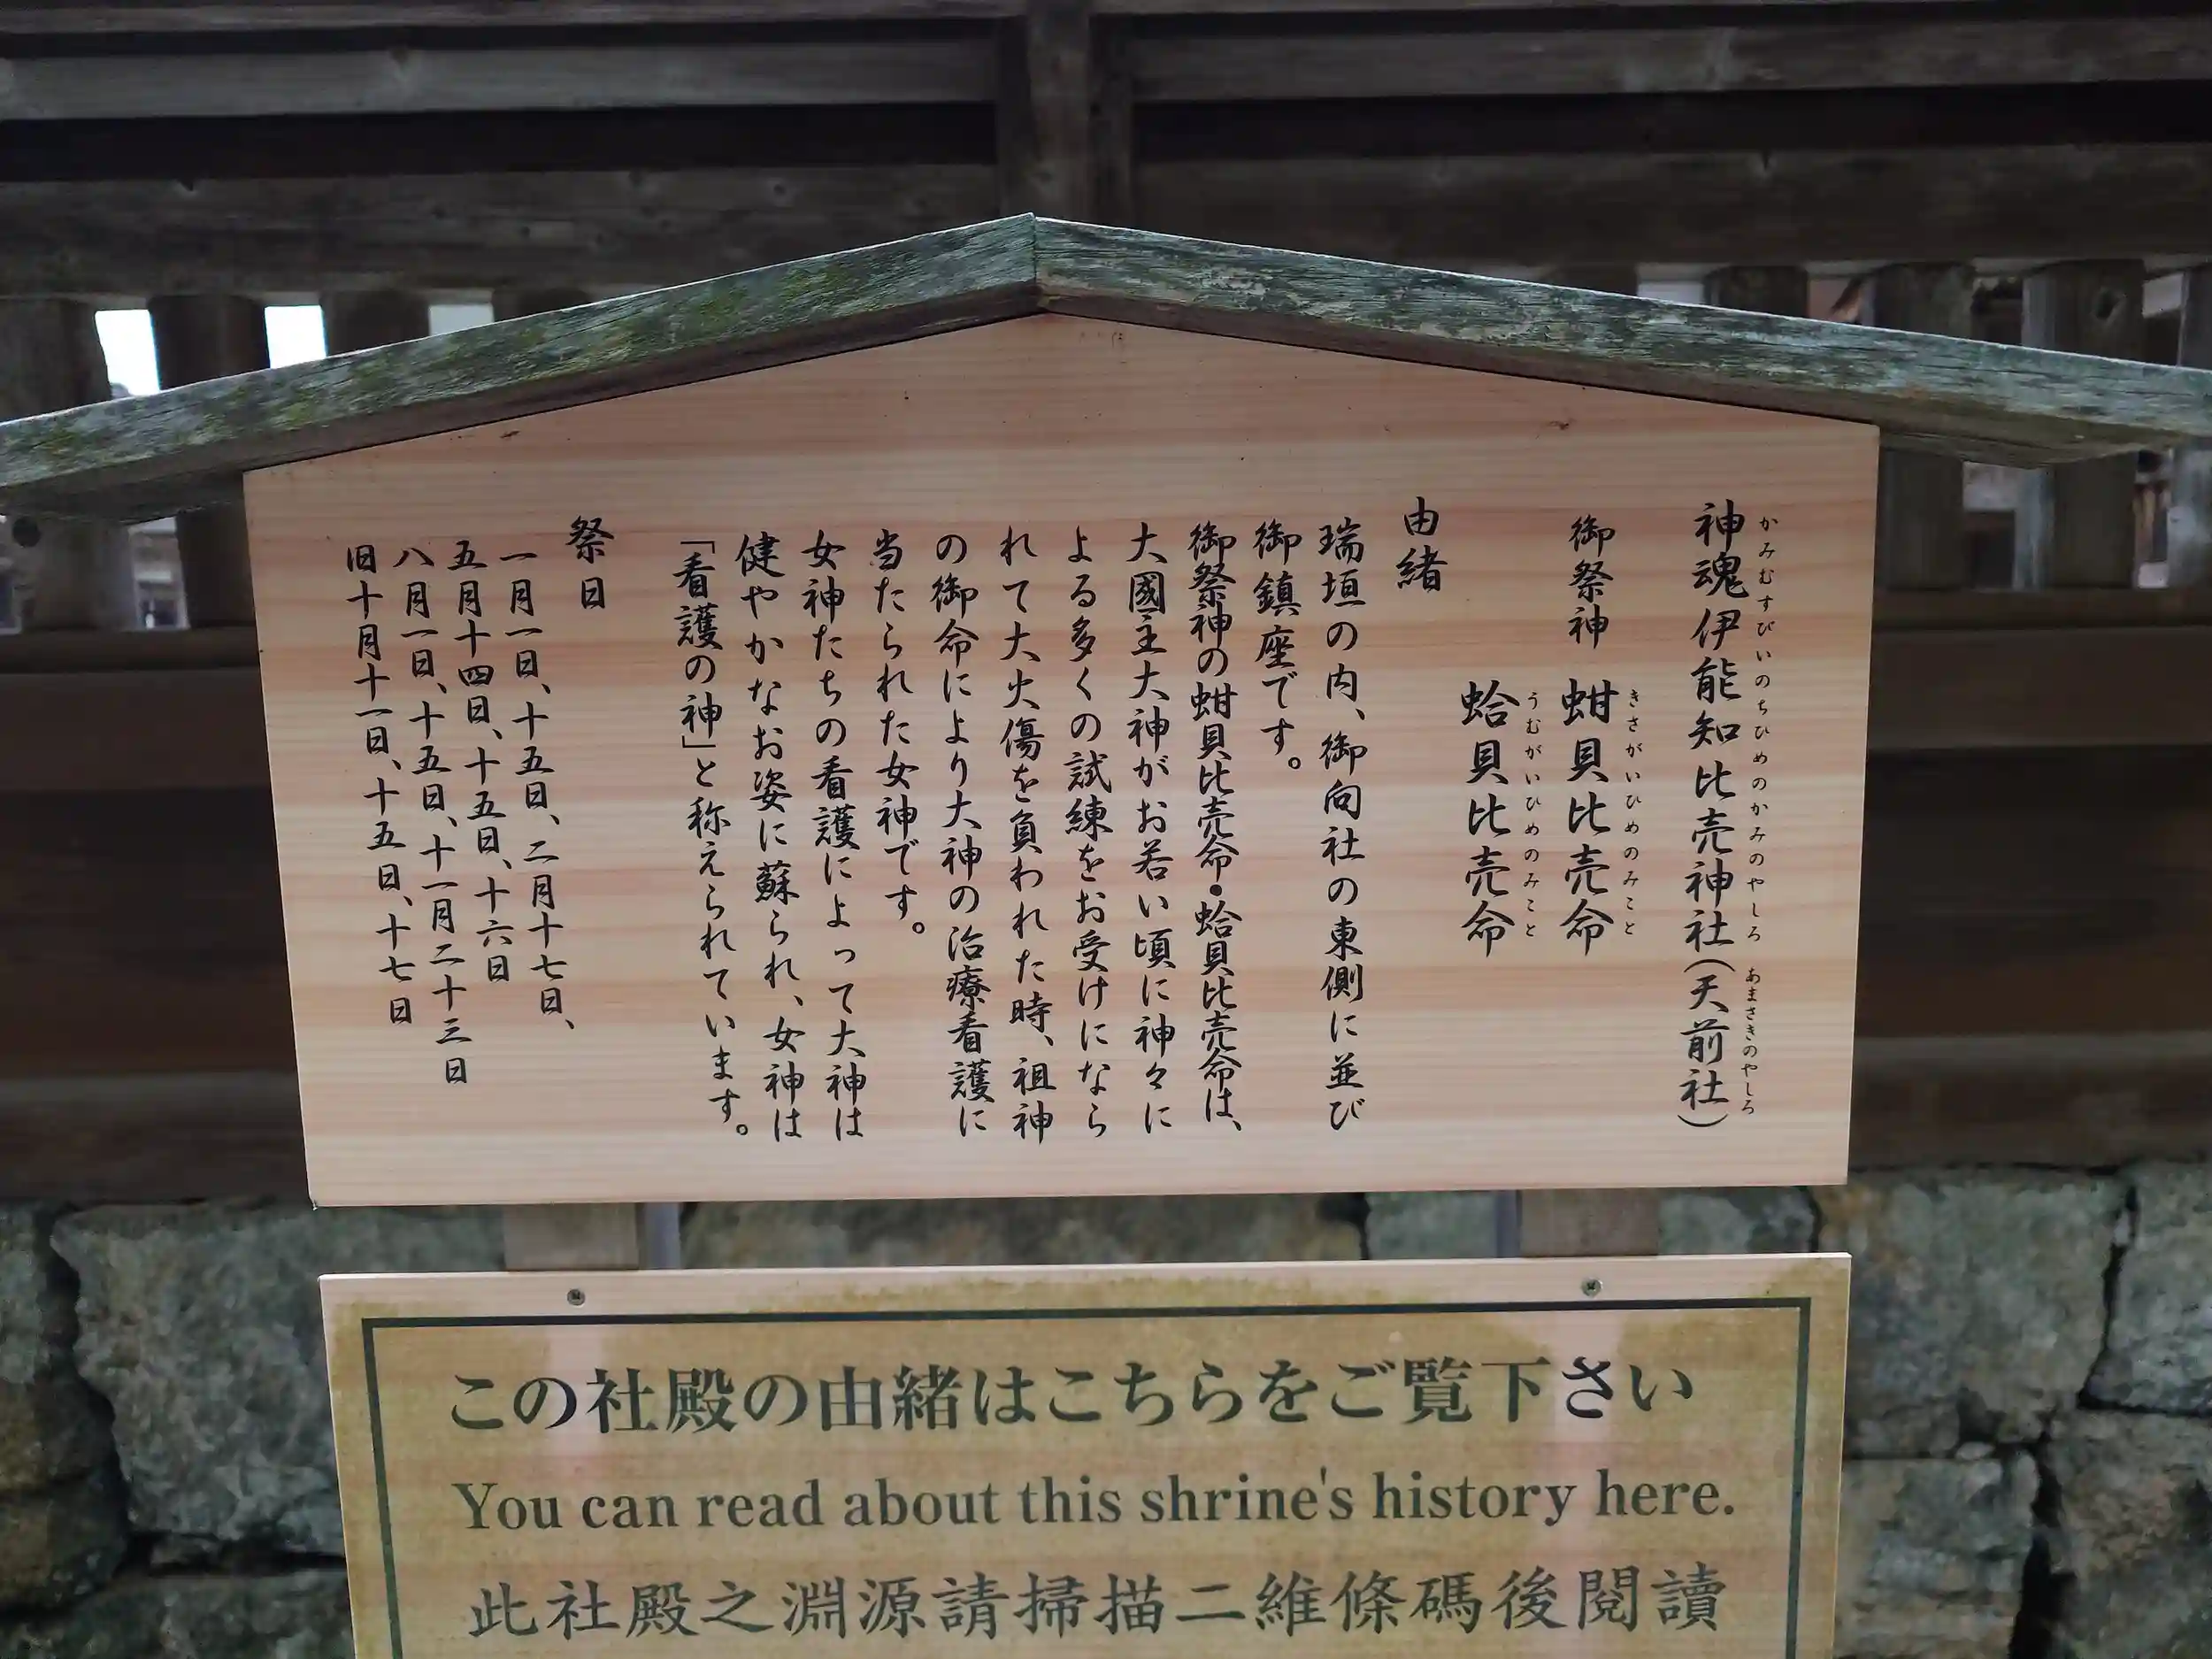 神魂伊能知比売神社(天前社)
かみむすびいのちひめのかみのやしろ あまさきのやしろ
御祭神 蚶貝比売命
きさがいひめのみこと
蛤貝比売命
うむがいひめのみこと
由緒
瑞垣の内、御向社の東側に並び
御鎮座です。
御祭神の蚶貝比売命・蛤貝比売命は、
大國主大神がお若い頃に神々に
よる多くの試練をお受けになら
れて大火傷を負われた時、祖神
の御命により大神の治療看護に
当たられた女神です。
女神たちの看護によって大神は
健やかなお姿に蘇られ、女神は
「看護の神」と称えられています。
祭日
一月一日、十五日、二月十七日、
五月十四日、十五日、十六日
八月一日、十五日、十一月二十三日
旧十月十一日、十五日、十七日
この社殿の由緒はこちらをご覧下さい
You can read about this shrine's history here.
此社殿之淵源請掃描二維條碼後閱讀